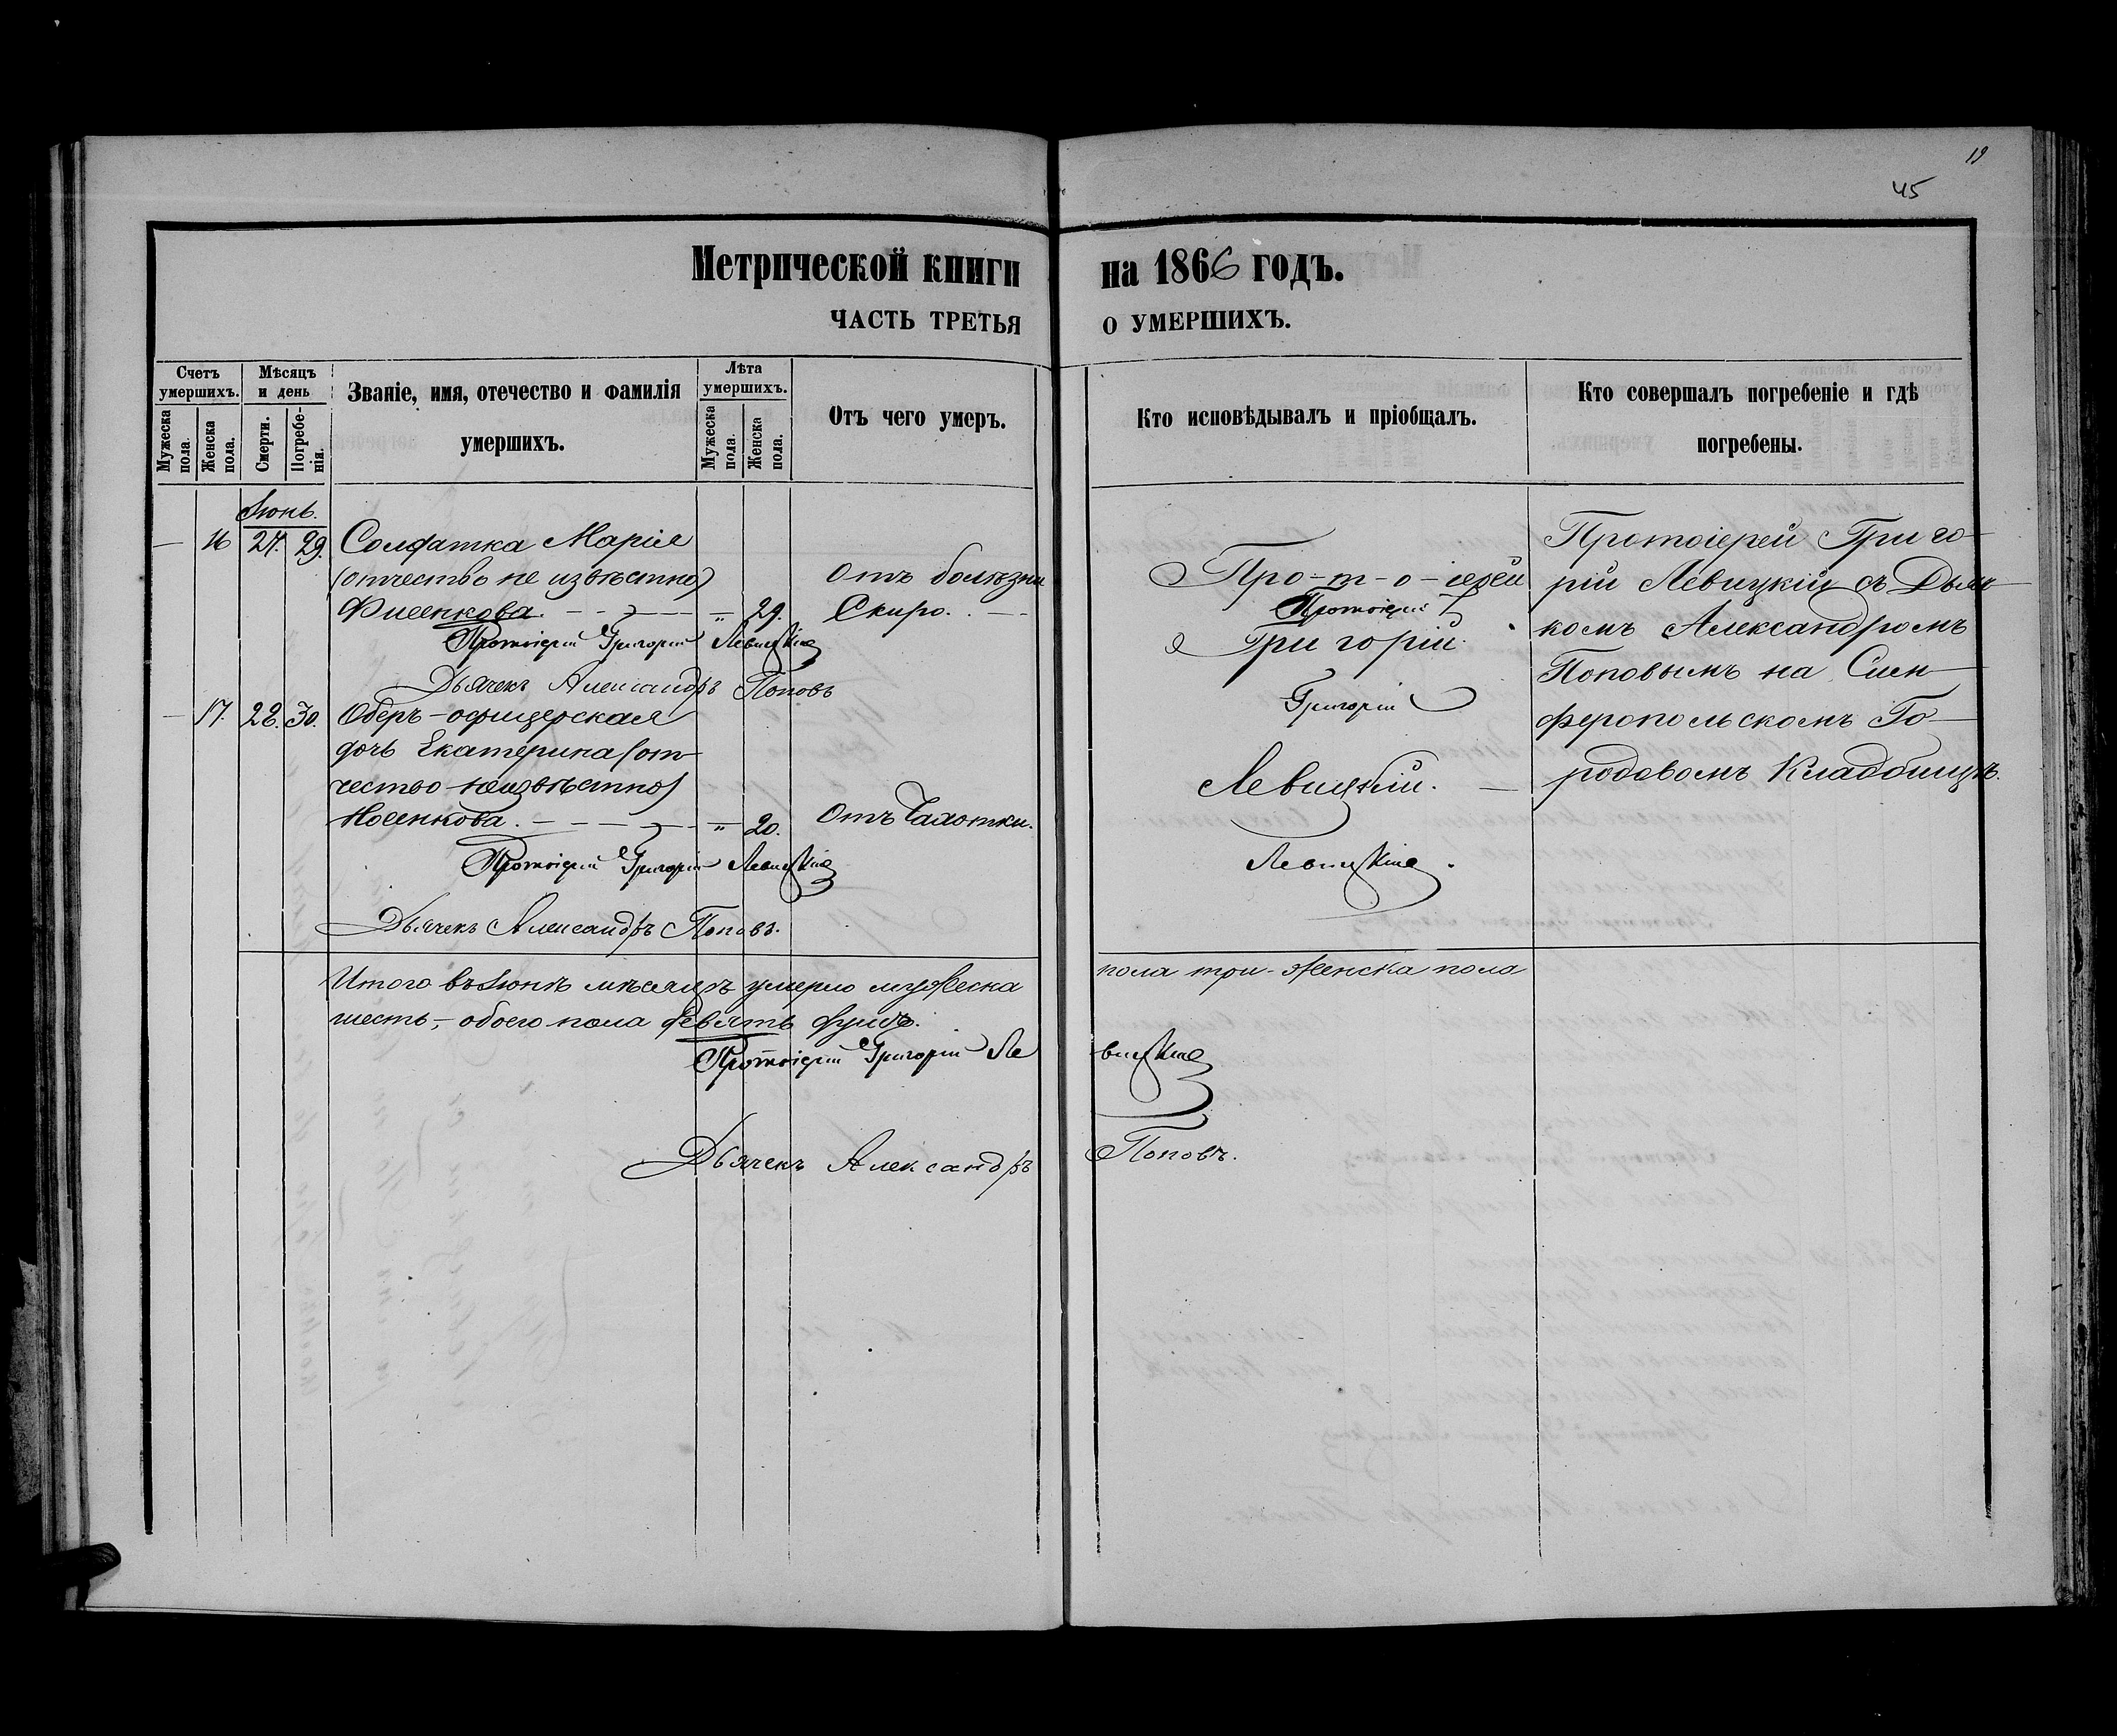 19
45
Метрической книги на 1866 годъ.
ЧАСТЬ ТРЕТЬЯ О УМЕРШИХЪ.
Счетъ умершихъ.
Мужеска пола.
Женска пола.
Мѣсяцъ и день
Смерти.
Погребенія.
Званіе, имя, отечество и фамилія
умершихъ.
Лѣта умершихъ.
Мужеска пола.
Женска пола.
Отъ чего умеръ.
Кто исповѣдывалъ и пріобщалъ.
Кто совершалъ погребеніе и гдѣ
погребены.
Іюнь.
— 16 27. 29. Солдатка Марія
(отчество не извѣстно) Отъ болѣзни
" 29. Скиро.
Протоіерей Григорій Левицкій
Дьячекъ Александръ Поповъ
— 17. 28. 30. Оберъ-офицерская
дочь Екатерина (от-
чество неизвѣстно)
Носенкова. " 20. Отъ Чахотки.
Протоіерей Григорій Левицкій
Дьячекъ Александръ Поповъ.
Про-т-о-іерей
Протоіерей
Григорій.
Григорій
Левицкій.
Левицкій.
Протоіерей Григо-
рій Левицкій съ Дьяч-
комъ Александромъ
Поповымъ на Сим-
феропольскомъ Го-
родовомъ Кладбищѣ.
Итого въ Іюнѣ мѣсяцѣ умерло мужеска пола три - женска пола
шесть, - обоего пола девять душъ.
Протоіерей Григорій Левицкій
Дьячекъ Александръ Поповъ.